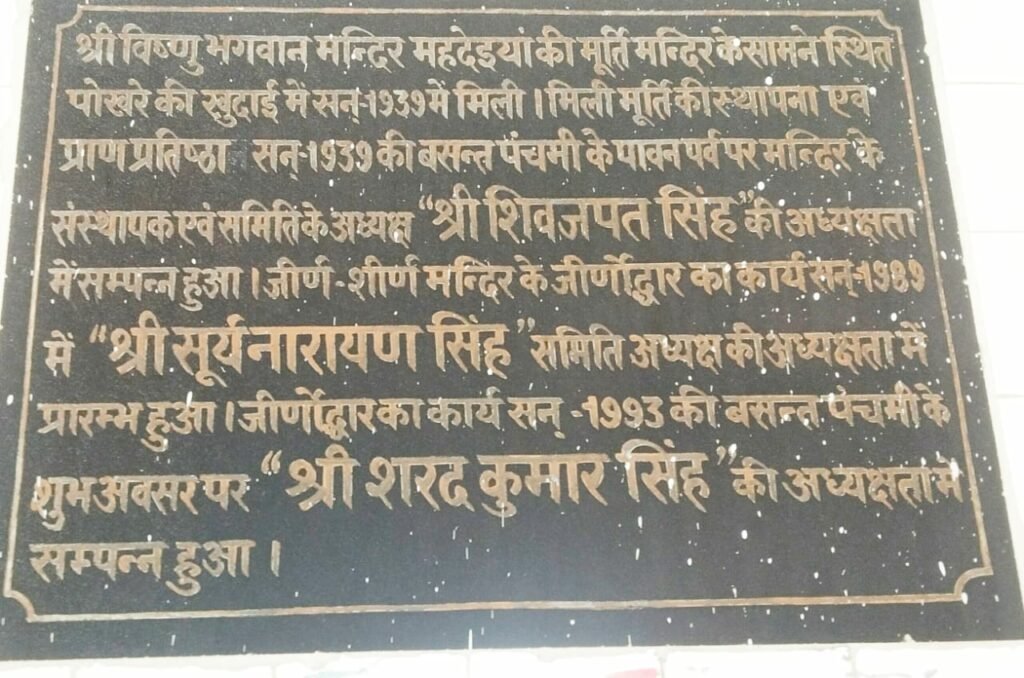 श्री विष्णु भगवान मन्दिर महदेइयां की मूर्ति मन्दिर के सामने स्थित
पोखरे की खुदाई में सन्-1939 में मिली । मिली मूर्ति की स्थापना एवं
प्राण प्रतिष्ठा सन्-1939 की बसन्त पंचमी के पावन पर्व पर मन्दिर के
संस्थापक एवं समिति के अध्यक्ष "श्री शिवजपत सिंह" की अध्यक्षता
में सम्पन्न हुआ । जीर्ण-शीर्ण मन्दिर के जीर्णोद्धार का कार्य सन्-1989
में "श्री सूर्यनारायण सिंह" समिति अध्यक्ष की अध्यक्षता में
प्रारम्भ हुआ । जीर्णोद्धार का कार्य सन् -1993 की बसन्त पंचमी के
शुभ अवसर पर "श्री शरद कुमार सिंह" की अध्यक्षता में
सम्पन्न हुआ ।